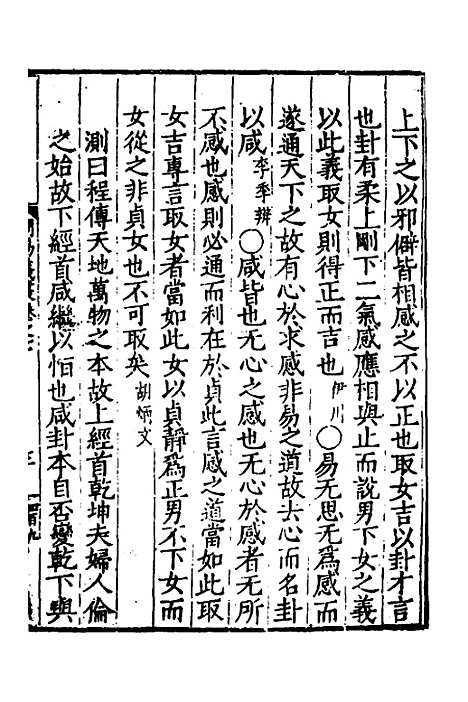 上下之以邪僻皆相感之不以正也取女吉以卦才言
也卦有柔上剛下二氣感應相與止而說男下女之義
以此義取女則得正而吉也伊川〇易无思无為感而
遂通天下之故有心於求感非易之道故去心而名卦
以咸李季辨〇咸皆也无心之感也无心於感者无所
不感也感則必通而利在於貞此言感之道當如此取
女吉專言取女者當如此女以貞靜為正男不下女而
女從之非貞女也不可取矣胡炳文
測曰程傳天地萬物之本故上經首乾坤夫婦人倫
之始故下經首咸繼以恒也咸卦本自否變乾下與